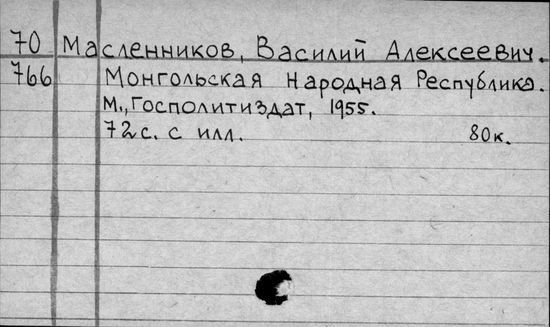 70 Масленников, Василий Алексеевич.
766 Монгольская Народная Республика.
М., Госполитиздат, 1955.
72 с. с илл. 80к.